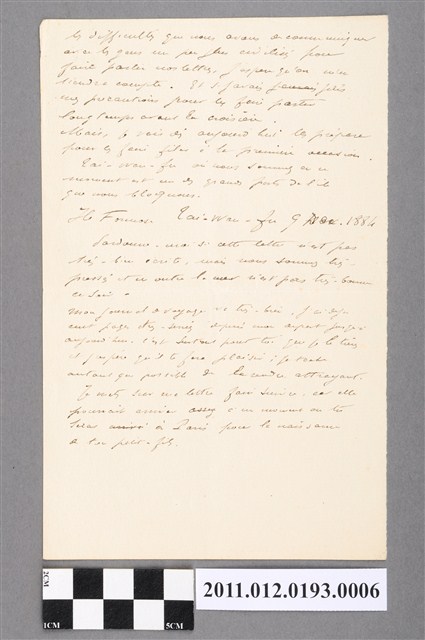 les difficultés que nous avons de communiquer
avec les gens un peu civilisés pour
faire porter nos lettres, j'espère qu'on m'en
tiendra compte. Et j'avais pris
mes précautions pour les faire partir
longtemps avant la croisière.
Mais, je vais dès aujourd'hui les préparer
pour les faire filer à la première occasion.
Taï-Wan-fu où nous sommes en ce
moment est un des grands ports de l'île
que nous bloquons.
Ile Formose Taï-Wan-fu 9 Déc. 1884
Pardonne-moi si cette lettre n'est pas
très bien écrite, mais nous sommes très
pressés et en outre la mer n'est pas très bonne
ce soir.
Mon journal de voyage va très bien. J'ai déjà
cent pages très serrées depuis mon départ jusqu'à
aujourd'hui. C'est surtout pour toi que je le tiens
et j'espère qu'il te fera plaisir; je tâche
autant que possible de le rendre attrayant.
Je mets sur ma lettre faire suivre, car elle
pourrait arriver assez à un moment où tu
seras à Paris pour la naissance
de ton petit-fils.
2CM
1CM
5CM
2011.012.0193.0006